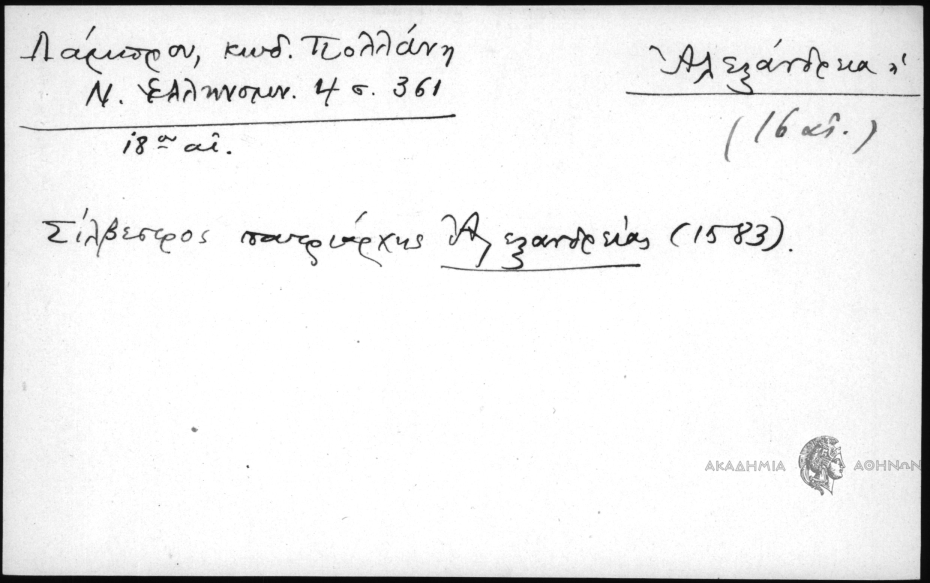 Λάμπρου, κωδ. Πολλάνη
Ν. Ἑλληνομν. 4 σ. 361
18ου αἰ.
Ἀλεξάνδρεια
(16 αἰ.)
Σίλβεστρος πατριάρχης Ἀλεξανδρείας (1583).
ΑΚΑΔΗΜΙΑ ΑΘΗΝΩΝ